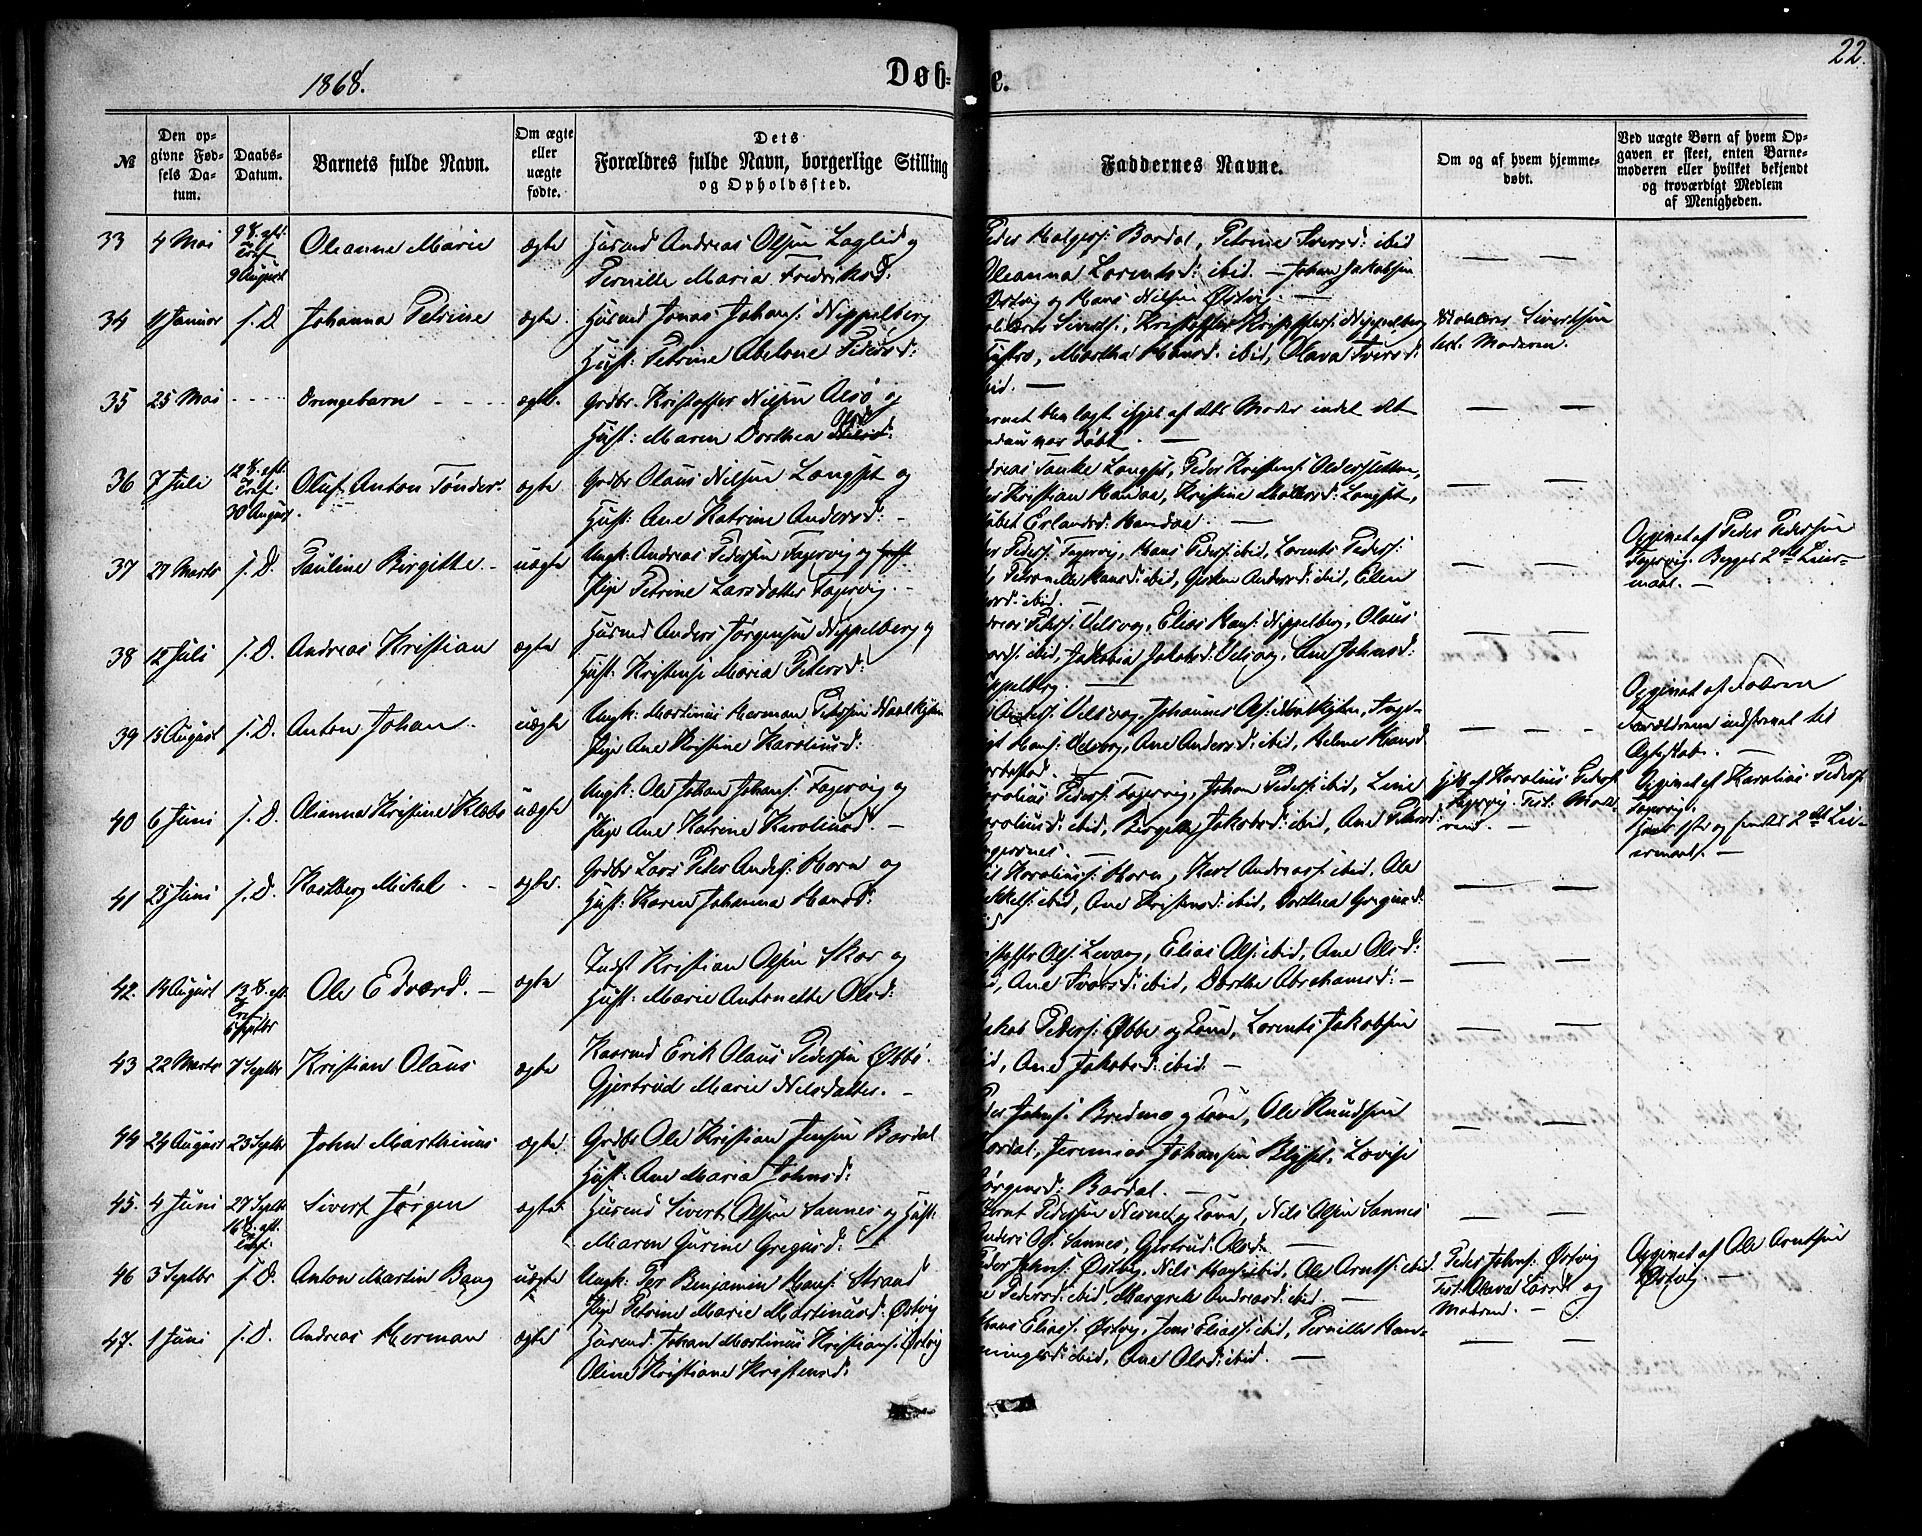 22.
1868.
Døb-
e.
№
Den op-
givne Fød-
sels Da-
tum.
Daabs-
Datum.
Barnets fulde Navn.
Om ægte
eller
uægte
fødte.
Dets
Forældres fulde Navn, borgerlige Stilling
og Opholdssted.
Faddernes Navne.
Om og af hvem hjemme-
døbt.
Ved uægte Børn af hvem Op-
gaven er skeet, enten Barne-
moderen eller hvilket bekjendt
og troværdigt Medlem
af Menigheden.
33
4 Mai
9 S. eft.
Tref.
9 August
Oleanna Marie
ægte
Husmd Andreas Olsen Laglid og
Pernille Maria Fredriksd:
Peder Holgers: Bardal, Petrine Iversd: ibid
Oleanna Lorentsd: ibid. – Johan Jakobsen
Østvig og Hans Nilsen Østvig. –
34
11 Januar
s. D.
Johanna Petrine
ægte
Husmd Jonas Johans: Nippelberg
Hust: Petrine Abelone Pedersd:
Siverts:, Kristoffer Kristoffers: Nippelberg
Hustro, Martha Hansd: ibid, Olava Iversd:
ibid. –
Sivertsen
Test. Moderen.
35
25 Mai
- - - -
Drengebarn - - -
ægte.
Grdbr. Kristoffer Nilsen Alsø og
Hust: Maren Dorthea Olsd:
Barnet blev lagt ihjel af dets Moder indel det
endnu var døbt. –
36
7 Juli
12 S. eft.
Tref.
30 August
Oluf Anton Tønder.
ægte
Grdbr Olaus Nilsen Langset og
Hust: Ane Katrine Andersd: –
Andreas Tanke Langset, Peder Kristens: Olderskatten,
Kristian Handaa, Kristine Langset,
Erlandsd: Handaa. –
37
27 Marts
s. D.
Pauline Birgitte. –
uægte
Ungk: Andreas Pedersen Fagervig og
Pige Petrine Larsdatter Fagervig. –
Peders: Fagervig, Hans Peders: ibid, Lorents Peders:
Petronelle Hansd: ibid, Andersd: ibid, Ellen
ibid.
Opgivet af Peder Pedersen
Fagervig. Begges 2det Leier-
maal. –
38
12 Juli
s. D.
Andreas Kristian
ægte
Husmd Anders Jørgensen Nippelberg og
Hust: Kristense Maria Petersd:
Andreas Peders: Velsvog, Elias Hans: Nippelberg, Olaus
ibid, Jakobia Jakobsd: Velsvog, Ane Johansd:
Nippelberg. –
39
15 August
s. D.
Anton Johan.
uægte
Ungk: Martinus Herman Peterssen
Pige Ane Kristine Karoliusd:
Velsvog, Johannes Ols:, Inge-
Hans: Velsvog, Ane Andersd: ibid, Helmer Hansd
Opgivet af Faderen
Forældrene indstevnet til
Ægteskab. –
40
6 Juni
s. D.
Olianna Kristine Klebo
uægte
Ungk: Ole Johan Johans: Fagervig og
Pige Ane Katrine Karoliusd. –
Karolius Peders: Fagervig, Johan Peders: ibid, Line
Karoliusd: ibid, Jakobsd: ibid, Ane Petersd:
Hjd. af Karolius Peders:
Fagervig. Test. Mode-
ren. –
Opgivet af Karolius Peders:
Fagervig.
Hans 1ste og hendes 2det Lei-
ermaal. –
41
25 Juni
s. D.
Karlberg Mikal. –
ægte.
Grdbr Lars Peder Anders: Horn og
Hust: Karen Johanna Hansd:
Karoliuss: Horn, Karl Andreass: ibid, Ole
Mikkels: ibid, Ane Kristensd: ibid, Dorthea Gregusd:
42.
14 August
13 S. eft.
Tref.
6 Septbr
Ole Edvard. –
ægte
Indst Kristian Olsen Skar og
Hust: Marie Antonette Olsd:
Kristoffer Ols: Levang, Elias Ols: ibid, Ane Olsd:
ibid, Ane Ivarsd: ibid, Dorthe Abrahamsd: –
43
22 Marts
7 Septbr
Kristian Olaus
ægte
Kaarmd Erik Olaus Pedersen Øbbø.
Gjertrud Marie Nilsdatter. –
Jakob Peders: Øbbe og Kone, Lorents Jakobsen
ibid, Ane Jakobsd: ibid –
44
24 August
23 Septbr
John Marthinus
ægte
Grdbr Ole Kristian Jensen Bardal
Hust: Ane Maria Johnsd:
Peder Johns: Bredmo og Kone, Ole Knudsen
Bardal, Jeremias Johansen Blyset, Lovise
Jørgensd: Bardal. –
45.
4 Juni
27 Septbr
16 S. eft.
Tref.
Sivert Jørgen
ægte
Husmd Sivert Olsen Sannes og Hust:
Maren Gurine Gregusd: –
Bernt Pedersen Nesnet og Kone, Nils Olsen Sannes
Anders Ols: Sannes, Gjertrud Olsd: –
46
3 Septbr
s. D.
Anton Martin Bang
uægte
Ungk: Per Benjamin Hans: Strand
Pige Petrine Marie Martinusd: Østvig
Peder Johns: Østvig, Nils Hans: ibid, Ole Arnts: ibid
Pedersd: ibid, Margrete Andreasd: ibid. –
Peder Johns: Østvig
Test. Olava Larsd: og
Moderen. –
Opgivet af Ole Arntsen
Østvig. –
47.
1 Juni
s. D.
Andreas Herman
ægte
Husmd Johan Martinus Kristians: Østvig
Oline Kristiane Kristensd:
Hans Elias: Østvig, Jens Eliass: ibid, Pernille Han-
ningsd: ibid, Ane Olsd: ibid. –